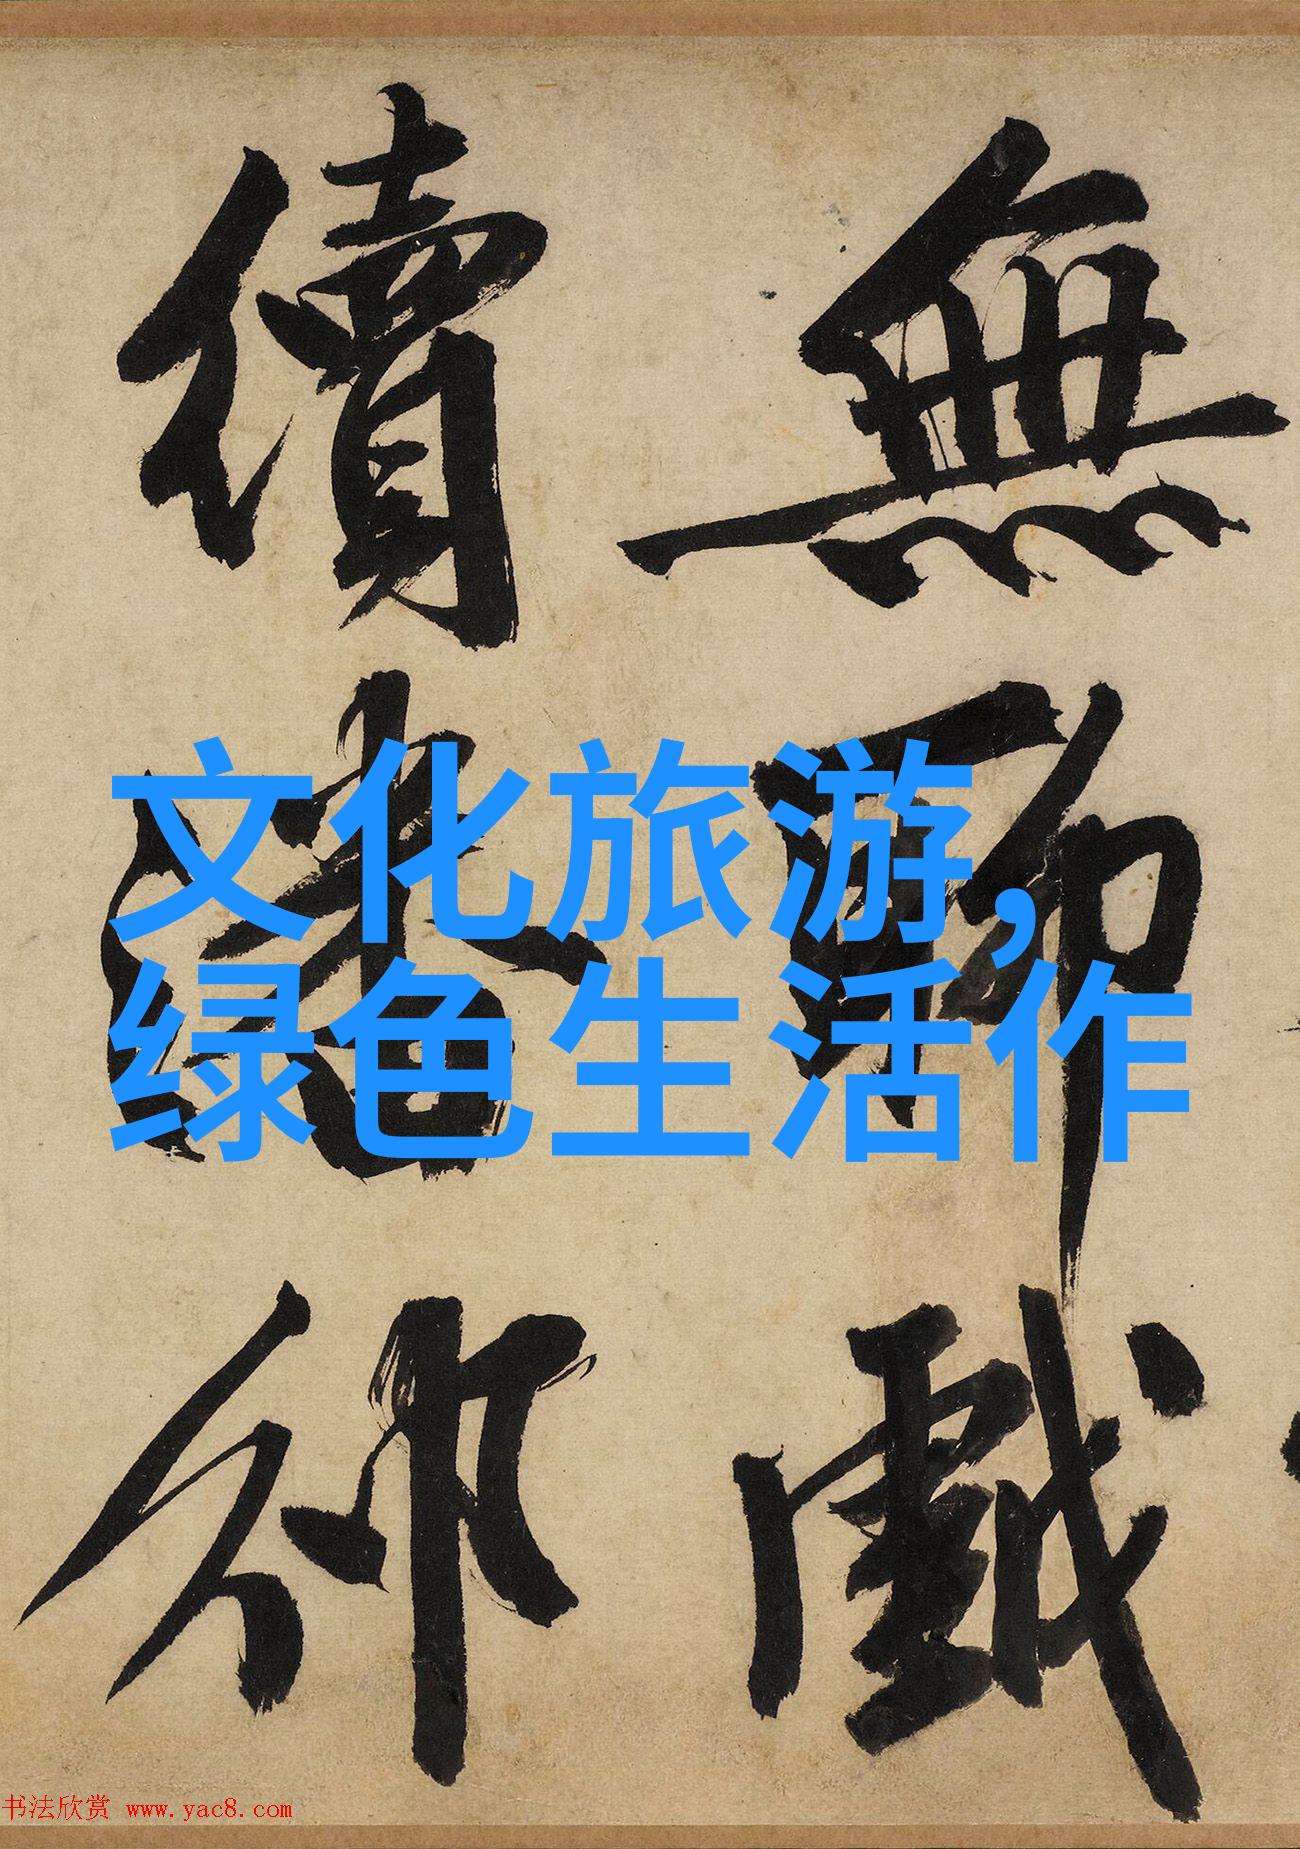 文化旅游，
绿色生活作
無 戲
續
书法欣赏 www.yac8.com